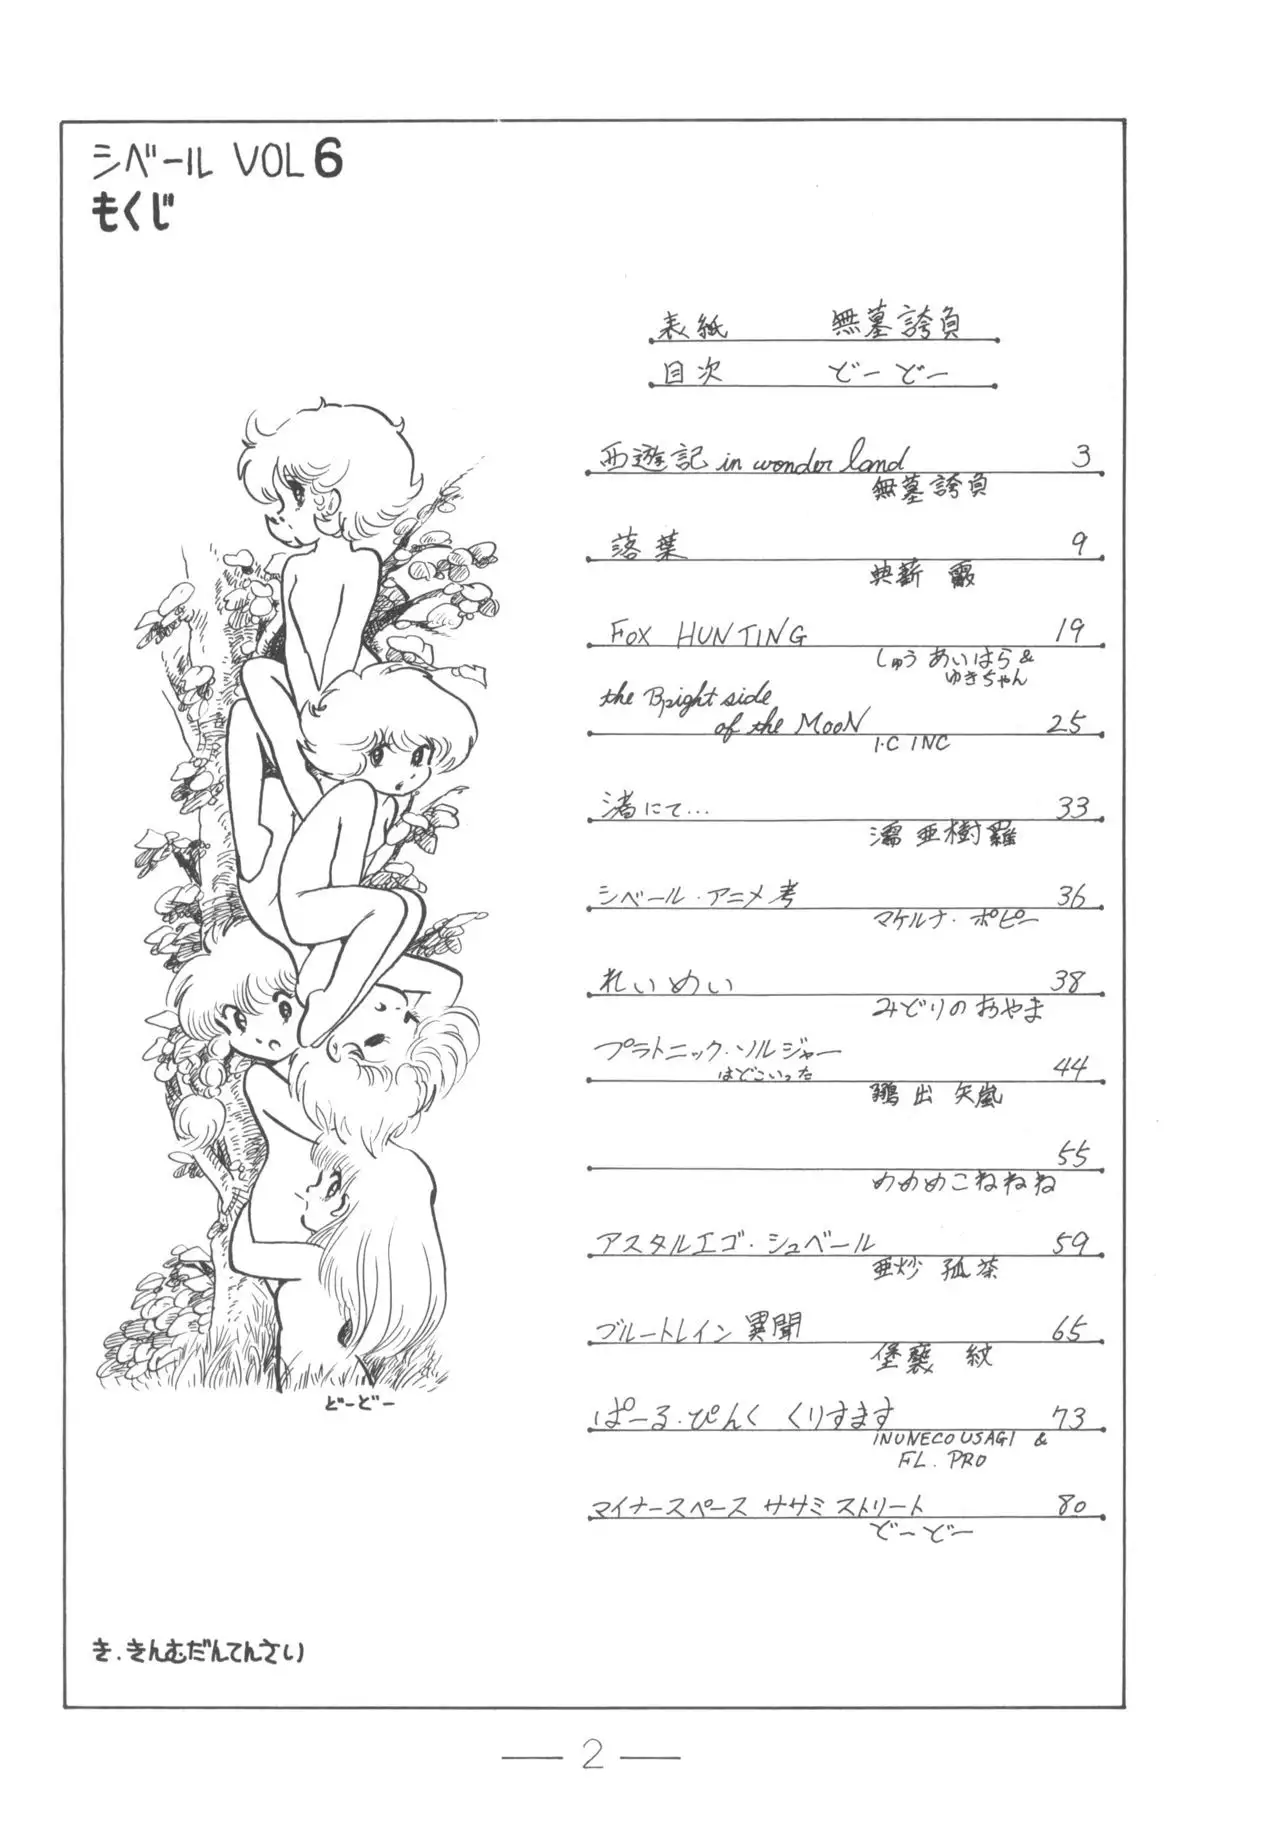 シベール VOL 6
もくじ
表紙 無墓誇負
目次 どーどー
西遊記 in wonder land 3
無墓誇負
落葉 9
典薪
FOX HUNTING 19
しゅう あいはら &
ゆきちゃん
the Bright side
of the MooN 25
I.C INC
渚にて… 33
亜樹羅
シベール・アニメ考 36
マケルナ・ポピー
れいめい 38
みどりの あやま
プラトニック・ソルジャー
はどこいった 44
出 矢嵐
55
めめめこねねね
アスタルエゴ・シュベール 59
亜炒 孤茶
ブルートレイン 異聞 65
紋
ぱーる・ぴんく くりすます 73
INUNECOUSAGI &
FL. PRO
マイナースペース ササミ ストリート 80
どーどー
どーどー
き.きんむだんてんさい
— 2 —